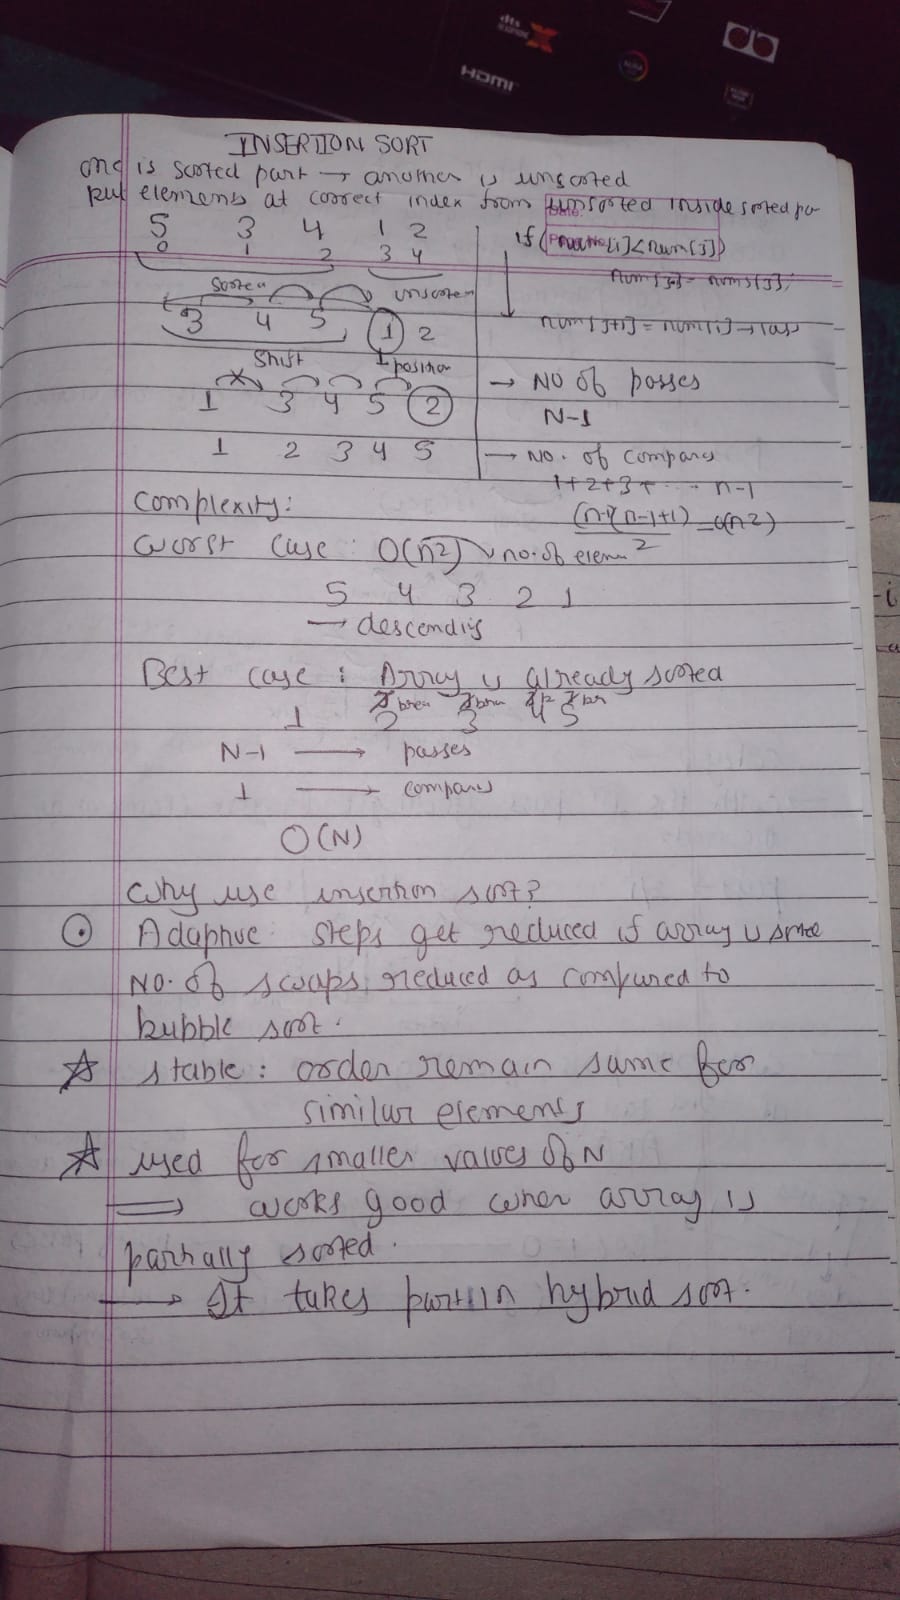 dts
X
HDMI
INSERTION SORT
one is sorted part → another is unsorted
put elements at correct index from unsorted inside sorted pa
5 3 4 1 2
0 1 2 3 4
if ( [i]<num[j])
sorted unsorted
nums[j];
3 4 5 1 2
num[j+1] = num[i] →
shift 1 position
1 3 4 5 2
→ NO of passes
N-1
1 2 3 4 5
→ NO. of compares
1+2+3+ ... n-1
Complexity:
(n-1)(n-1+1) = O(n2)
2
worst case : O(n2) → no. of elem
5 4 3 2 1
→ descending
Best case : Array is already sorted
1 2 3 4 5
N-1 → passes
1 → compares
O(N)
Why use insertion sort?
Adaptive: steps get reduced if array is
NO. of swaps reduced as compared to
bubble sort.
☆ stable : order remain same for
similar elements
☆ used for smaller values of N
⇒ works good when array is
partially sorted.
→ It takes part in hybrid sort.